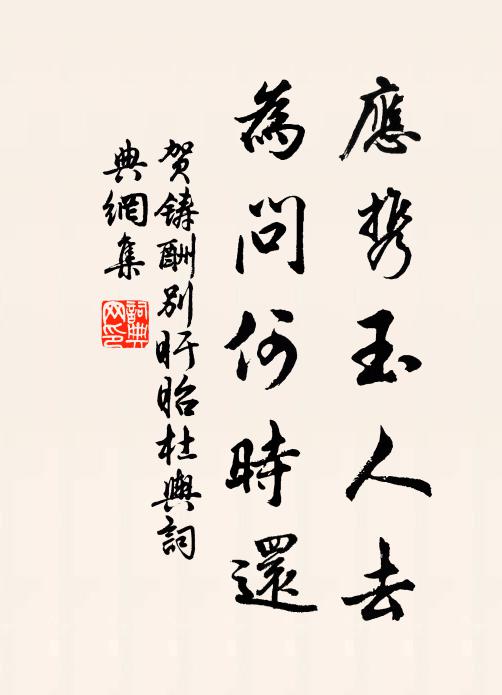 應携玉人去
為問何時還
贺鑄酬別盱眙杜輿詞
典網集
詞典
网印